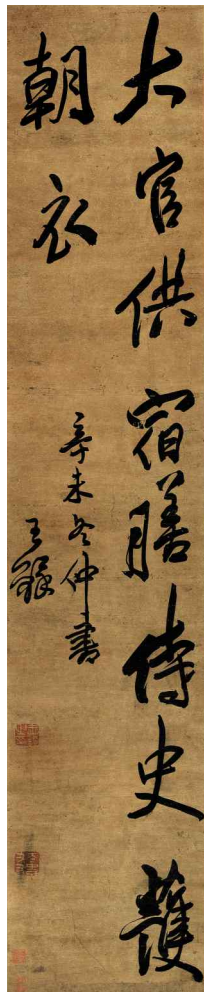 大官供宿膳侍史護
朝衣
辛未冬仲書
王鐸